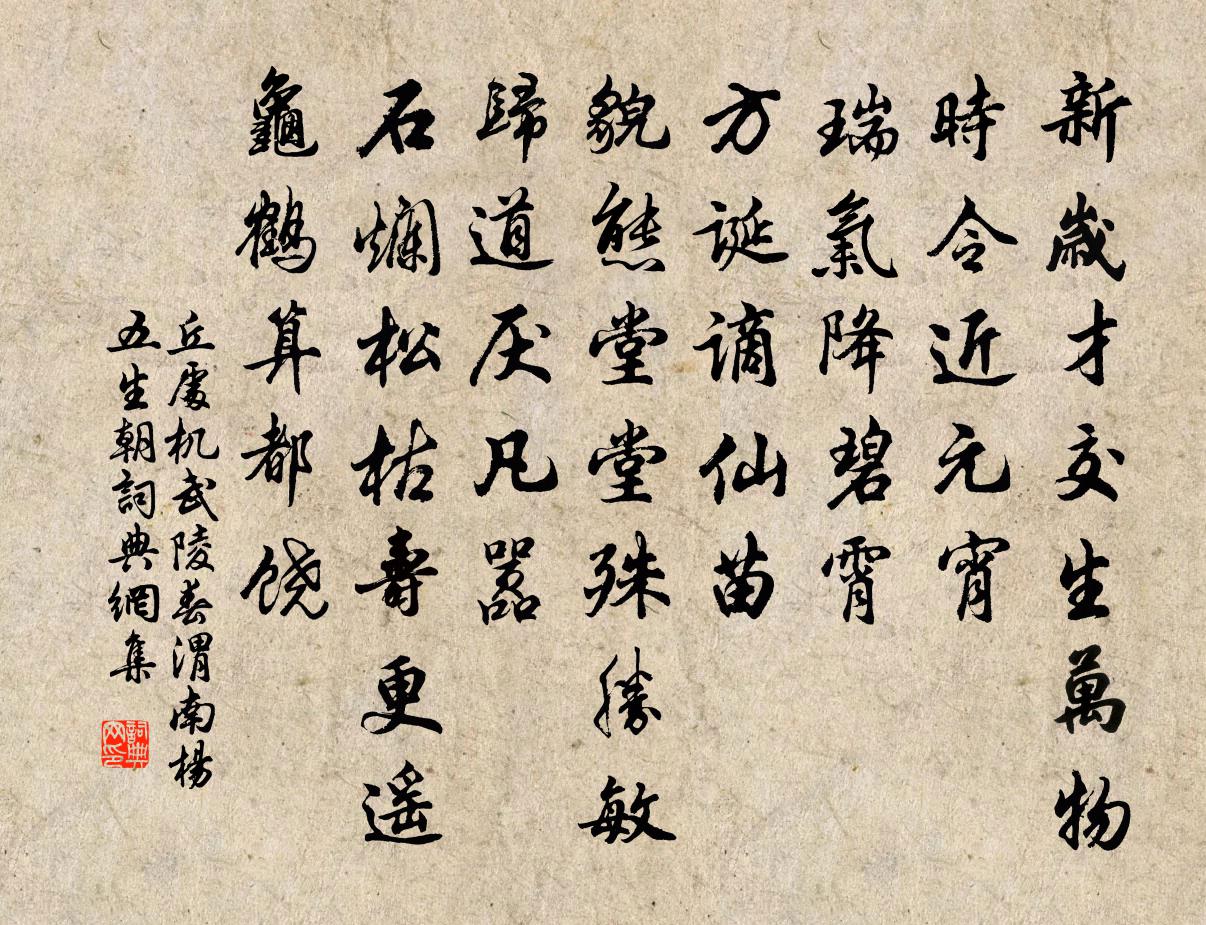 新歳才交生萬物
時令近元宵
瑞氣降碧霄
方誕謫仙苗
貌態堂堂殊勝敏
歸道厌凡嚣
石爛松枯壽更遥
龜鶴算都饶
丘處机武陵春渭南楊
五生朝詞典網集
詞典
网印